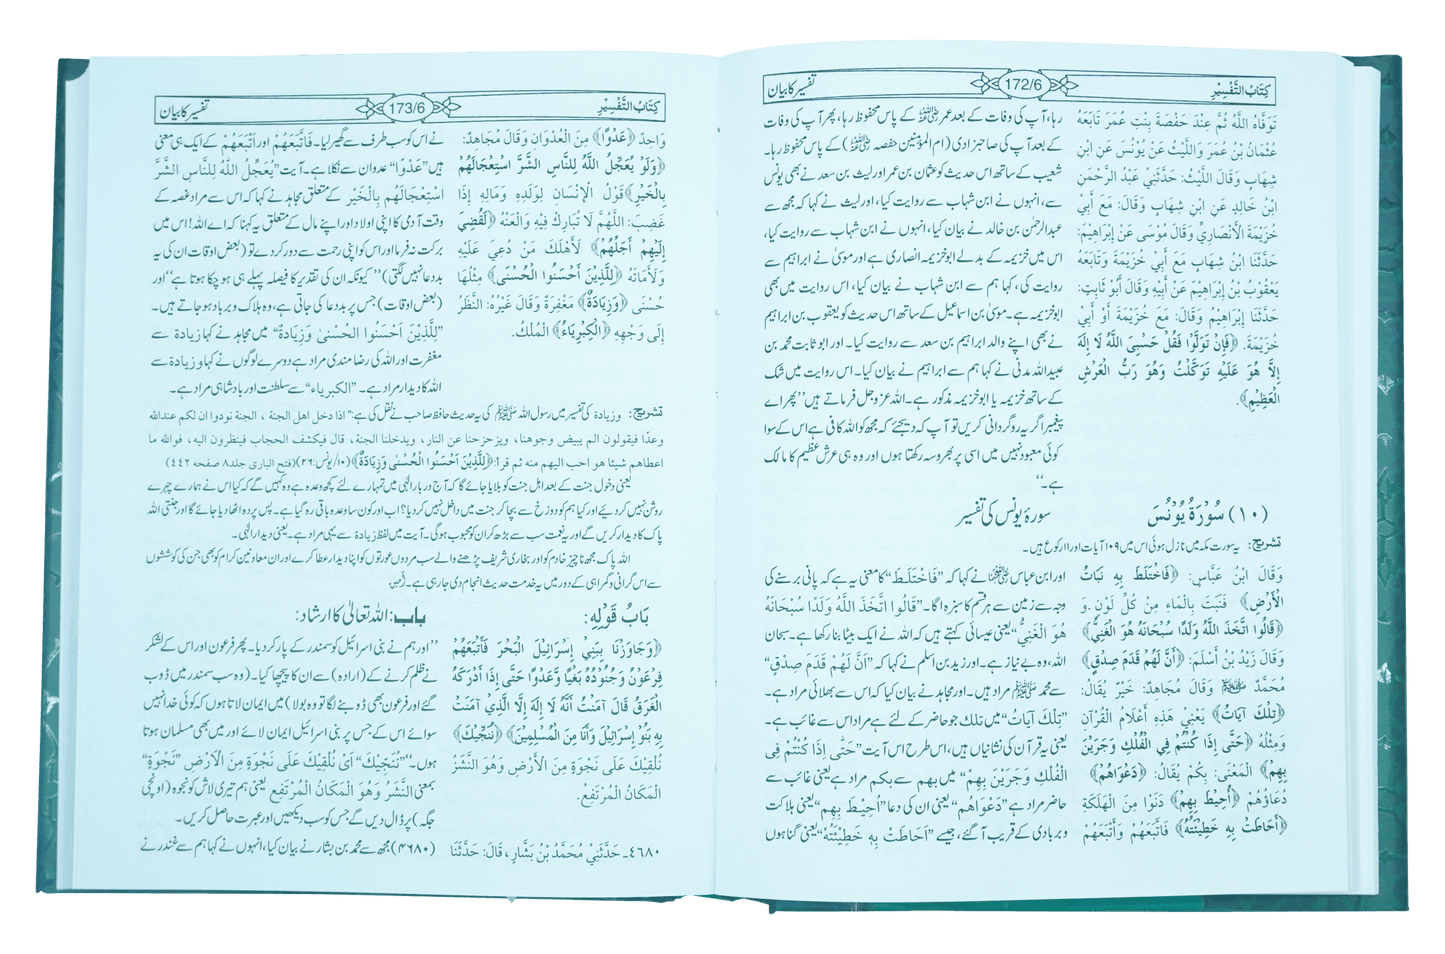 كِتَابُ التَّفْسِيْرِ 172/6 تفسیر کا بیان
تَوَفَّاهُ اللَّهُ ثُمَّ عِنْدَ حَفْصَةَ بِنْتِ عُمَرَ تَابَعَهُ
عُثْمَانُ بْنُ عُمَرَ وَاللَّيْثُ عَنْ يُونُسَ عَنِ ابْنِ
شِهَابٍ وَقَالَ اللَّيْثُ: حَدَّثَنِيْ عَبْدُ الرَّحْمَنِ
ابْنُ خَالِدٍ عَنِ ابْنِ شِهَابٍ وَقَالَ: مَعَ أَبِي
خُزَيْمَةَ الْأَنْصَارِيِّ وَقَالَ مُوْسَى عَنْ إِبْرَاهِيْمَ:
حَدَّثَنَا ابْنُ شِهَابٍ مَعَ أَبِي خُزَيْمَةَ وَتَابَعَهُ
يَعْقُوْبُ بْنُ إِبْرَاهِيْمَ عَنْ أَبِيْهِ وَقَالَ أَبُوْ ثَابِتٍ:
حَدَّثَنَا إِبْرَاهِيْمُ وَقَالَ: مَعَ خُزَيْمَةَ أَوْ أَبِي
خُزَيْمَةَ. ﴿فَإِنْ تَوَلَّوْا فَقُلْ حَسْبِيَ اللَّهُ لَا إِلَهَ
إِلَّا هُوَ عَلَيْهِ تَوَكَّلْتُ وَهُوَ رَبُّ الْعَرْشِ
الْعَظِيْمِ﴾.
رہا، آپ کی وفات کے بعد عمر رضی اللہ عنہ کے پاس محفوظ رہا، پھر آپ کی وفات
کے بعد آپ کی صاحبزادی (ام المؤمنین حفصہ رضی اللہ عنہا) کے پاس محفوظ رہا۔
شعیب کے ساتھ اس حدیث کو عثمان بن عمر اور لیث بن سعد نے بھی یونس
سے، انہوں نے ابن شہاب سے روایت کیا، اور لیث نے کہا کہ مجھ سے
عبدالرحمٰن بن خالد نے بیان کیا، انہوں نے ابن شہاب سے روایت کیا،
اس میں خزیمہ کے بدلے ابوخزیمہ انصاری ہے اور موسیٰ نے ابراہیم سے
روایت کی، کہا ہم سے ابن شہاب نے بیان کیا، اس روایت میں بھی
ابوخزیمہ ہے۔ موسیٰ بن اسماعیل کے ساتھ اس حدیث کو یعقوب بن ابراہیم
نے بھی اپنے والد ابراہیم بن سعد سے روایت کیا۔ اور ابو ثابت محمد بن
عبیداللہ مدنی نے کہا ہم سے ابراہیم نے بیان کیا۔ اس روایت میں شک
کے ساتھ خزیمہ یا ابوخزیمہ مذکور ہے۔ اللہ عزوجل فرماتے ہیں ”پھر اے
پیغمبر! اگر یہ روگردانی کریں تو آپ کہہ دیجئے کہ مجھ کو اللہ کافی ہے اس کے سوا
کوئی معبود نہیں میں اسی پر بھروسہ رکھتا ہوں اور وہ ہی عرش عظیم کا مالک
ہے۔“
(١٠) سُوْرَةُ يُوْنُسَ
سورۂ یونس کی تفسیر
تشریح: یہ سورت مکہ میں نازل ہوئی اس میں ۱۰۹ آیات اور ۱۱ رکوع ہیں۔
وَقَالَ ابْنُ عَبَّاسٍ: ﴿فَاخْتَلَطَ بِهِ نَبَاتُ
الْأَرْضِ﴾ فَنَبَتَ بِالْمَاءِ مِنْ كُلِّ لَوْنٍ. وَ
﴿قَالُوا اتَّخَذَ اللَّهُ وَلَدًا سُبْحَانَهُ هُوَ الْغَنِيُّ﴾
وَقَالَ زَيْدُ بْنُ أَسْلَمَ: ﴿أَنَّ لَهُمْ قَدَمَ صِدْقٍ﴾
مُحَمَّدٌ ﷺ وَقَالَ مُجَاهِدٌ: خَيْرٌ يُقَالُ:
﴿تِلْكَ آيَاتُ﴾ يَعْنِيْ هَذِهِ أَعْلَامُ الْقُرْآنِ
وَمِثْلُهُ ﴿حَتَّى إِذَا كُنْتُمْ فِي الْفُلْكِ وَجَرَيْنَ
بِهِمْ﴾ الْمَعْنَى: بِكُمْ يُقَالُ: ﴿دَعْوَاهُمْ﴾
دُعَاؤُهُمْ ﴿أُحِيْطَ بِهِمْ﴾ دَنَوْا مِنَ الْهَلَكَةِ
﴿أَحَاطَتْ بِهِ خَطِيْئَتُهُ﴾ فَاتَّبَعَهُمْ وَأَتْبَعَهُمْ
اور ابن عباس رضی اللہ عنہما نے کہا کہ ”فَاخْتَلَطَ“ کا معنی یہ ہے کہ پانی برسنے کی
وجہ سے زمین سے ہر قسم کا سبزہ اگا۔ ”قَالُوا اتَّخَذَ اللَّهُ وَلَدًا سُبْحَانَهُ
هُوَ الْغَنِيُّ“ یعنی عیسائی کہتے ہیں کہ اللہ نے ایک بیٹا بنا رکھا ہے۔ سبحان
اللہ، وہ بے نیاز ہے۔ اور زید بن اسلم نے کہا کہ ”اَنَّ لَهُمْ قَدَمَ صِدْقٍ“
سے محمد ﷺ مراد ہیں۔ اور مجاہد نے بیان کیا کہ اس سے بھلائی مراد ہے۔
”تِلْكَ آيَاتُ“ میں تلك جو حاضر کے لئے ہے مراد اس سے غائب ہے۔
یعنی یہ قرآن کی نشانیاں ہیں، اسی طرح اس آیت ”حَتّٰى اِذَا كُنْتُمْ فِى
الْفُلْكِ وَجَرَيْنَ بِهِمْ“ میں بهم سے بكم مراد ہے یعنی غائب سے
حاضر مراد ہے ”دَعْوَاهُم“ یعنی ان کی دعا ”اُحِيْطَ بِهِم“ یعنی ہلاکت
و بربادی کے قریب آ گئے، جیسے ”اَحَاطَتْ بِهِ خَطِيْئَتُهُ“ یعنی گناہوں
كِتَابُ التَّفْسِيْرِ 173/6 تفسیر کا بیان
وَاحِدٌ ﴿عَدْوًا﴾ مِنَ الْعُدْوَانِ وَقَالَ مُجَاهِدٌ:
﴿وَلَوْ يُعَجِّلُ اللَّهُ لِلنَّاسِ الشَّرَّ اسْتِعْجَالَهُمْ
بِالْخَيْرِ﴾ قَوْلُ الْإِنْسَانِ لِوَلَدِهِ وَمَالِهِ إِذَا
غَضِبَ: اللَّهُمَّ لَا تُبَارِكْ فِيْهِ وَالْعَنْهُ ﴿لَقُضِيَ
إِلَيْهِمْ أَجَلُهُمْ﴾ لَأَهْلَكَ مَنْ دُعِيَ عَلَيْهِ
وَلَأَمَاتَهُ ﴿لِلَّذِيْنَ أَحْسَنُوا الْحُسْنَى﴾ مِثْلُهَا
حُسْنَى ﴿وَزِيَادَةٌ﴾ مَغْفِرَةٌ وَقَالَ غَيْرُهُ: النَّظَرُ
إِلَى وَجْهِهِ ﴿الْكِبْرِيَاءُ﴾ الْمُلْكُ.
نے اس کو سب طرف سے گھیر لیا۔ فَاتَّبَعَهُمْ اور اَتْبَعَهُمْ کے ایک ہی معنی
ہیں ”عَدْوًا“ عدوان سے نکلا ہے۔ آیت ”يُعَجِّلُ اللّٰهُ لِلنَّاسِ الشَّرَّ
اسْتِعْجَالَهُم بِالْخَيْرِ“ کے متعلق مجاہد نے کہا کہ اس سے مراد غصہ کے
وقت آدمی کا اپنی اولاد اور اپنے مال کے متعلق یہ کہنا کہ اے اللہ! اس میں
برکت نہ فرما اور اس کو اپنی رحمت سے دور کر دے تو (بعض اوقات ان کی یہ
بددعا نہیں لگتی) ”کیونکہ ان کی تقدیر کا فیصلہ پہلے ہی ہو چکا ہوتا ہے“ اور
(بعض اوقات) جس پر بددعا کی جاتی ہے، وہ ہلاک و برباد ہو جاتے ہیں۔
”لِلَّذِيْنَ اَحْسَنُوا الْحُسْنٰى وَزِيَادَةٌ“ میں مجاہد نے کہا زیادة سے
مغفرت اور اللہ کی رضا مندی مراد ہے دوسرے لوگوں نے کہا وزیادة سے
اللہ کا دیدار مراد ہے۔ ”الکبریاء“ سے سلطنت اور بادشاہی مراد ہے۔
تشریح: وزیادة کی تفسیر میں رسول اللہ ﷺ کی یہ حدیث حافظ صاحب نے نقل کی ہے: ”اذا دخل اهل الجنة ، الجنة نودوا ان لكم عندالله
وعدًا فيقولون الم يبيض وجوهنا، ويزحزحنا عن النار، ويدخلنا الجنة، قال فيكشف الحجاب فينظرون اليه، فوالله ما
اعطاهم شيئا هو احب اليهم منه ثم قرا: ﴿لِلَّذِيْنَ اَحْسَنُوا الْحُسْنٰى وَزِيَادَةٌ﴾ (۱۰/یونس:۲۶) (فتح الباری جلد۸ صفحہ ۴۴۲)
یعنی دخول جنت کے بعد اہل جنت کو بلایا جائے گا کہ آج دربار الٰہی میں تمہارے لئے کچھ وعدہ ہے وہ کہیں گے کہ کیا اس نے ہمارے چہرے
روشن نہیں کر دیئے اور کیا ہم کو دوزخ سے بچا کر جنت میں داخل نہیں کر دیا؟ اب اور کون سا وعدہ باقی رہ گیا ہے۔ پس پردہ اٹھا دیا جائے گا اور جنتی اللہ
پاک کا دیدار کریں گے اور یہ نعمت سب سے بڑھ کر ان کو محبوب ہوگی۔ آیت میں لفظ زیادة سے یہی مراد ہے۔ یعنی دیدار الٰہی۔
اللہ پاک مجھ ناچیز خادم کو اور بخاری شریف پڑھنے والے سب مردوں عورتوں کو اپنا دیدار عطا کرے اور ان معاونین کرام کو بھی جن کی کوششوں
سے اس گرانی و گمراہی کے دور میں یہ خدمت حدیث انجام دی جا رہی ہے۔ آمین
بَابُ قَوْلِهِ:
باب: اللہ تعالیٰ کا ارشاد:
﴿وَجَاوَزْنَا بِبَنِيْ إِسْرَائِيْلَ الْبَحْرَ فَأَتْبَعَهُمْ
فِرْعَوْنُ وَجُنُوْدُهُ بَغْيًا وَعَدْوًا حَتَّى إِذَا أَدْرَكَهُ
الْغَرَقُ قَالَ آمَنْتُ أَنَّهُ لَا إِلَهَ إِلَّا الَّذِيْ آمَنَتْ
بِهِ بَنُوْ إِسْرَائِيْلَ وَأَنَا مِنَ الْمُسْلِمِيْنَ﴾ ﴿نُنَجِّيْكَ﴾
نُلْقِيْكَ عَلَى نَجْوَةٍ مِنَ الْأَرْضِ وَهُوَ النَّشَزُ
الْمَكَانُ الْمُرْتَفِعُ.
”اور ہم نے بنی اسرائیل کو سمندر کے پار کر دیا۔ پھر فرعون اور اس کے لشکر
نے ظلم کرنے کے (ارادہ) سے ان کا پیچھا کیا۔ (وہ سب سمندر میں ڈوب
گئے اور فرعون بھی ڈوبنے لگا تو وہ بولا) میں ایمان لاتا ہوں کہ کوئی خدا نہیں
سوائے اس کے جس پر بنی اسرائیل ایمان لائے اور میں بھی مسلمان ہوتا
ہوں۔“ ”نُنَجِّيْكَ“ اَىْ نُلْقِيْكَ عَلٰى نَجْوَةٍ مِنَ الْاَرْضِ ”نَجْوَةٍ“
بمعنی النَّشَزُ وَهُوَ الْمَكَانُ الْمُرْتَفِع یعنی ہم تیری لاش کو نجوہ (اونچی
جگہ) پر ڈال دیں گے جس کو سب دیکھیں اور عبرت حاصل کریں۔
٤٦٨٠ـ حَدَّثَنِيْ مُحَمَّدُ بْنُ بَشَّارٍ، قَالَ: حَدَّثَنَا
(۴۶۸۰) مجھ سے محمد بن بشار نے بیان کیا، انہوں نے کہا ہم سے غندر نے